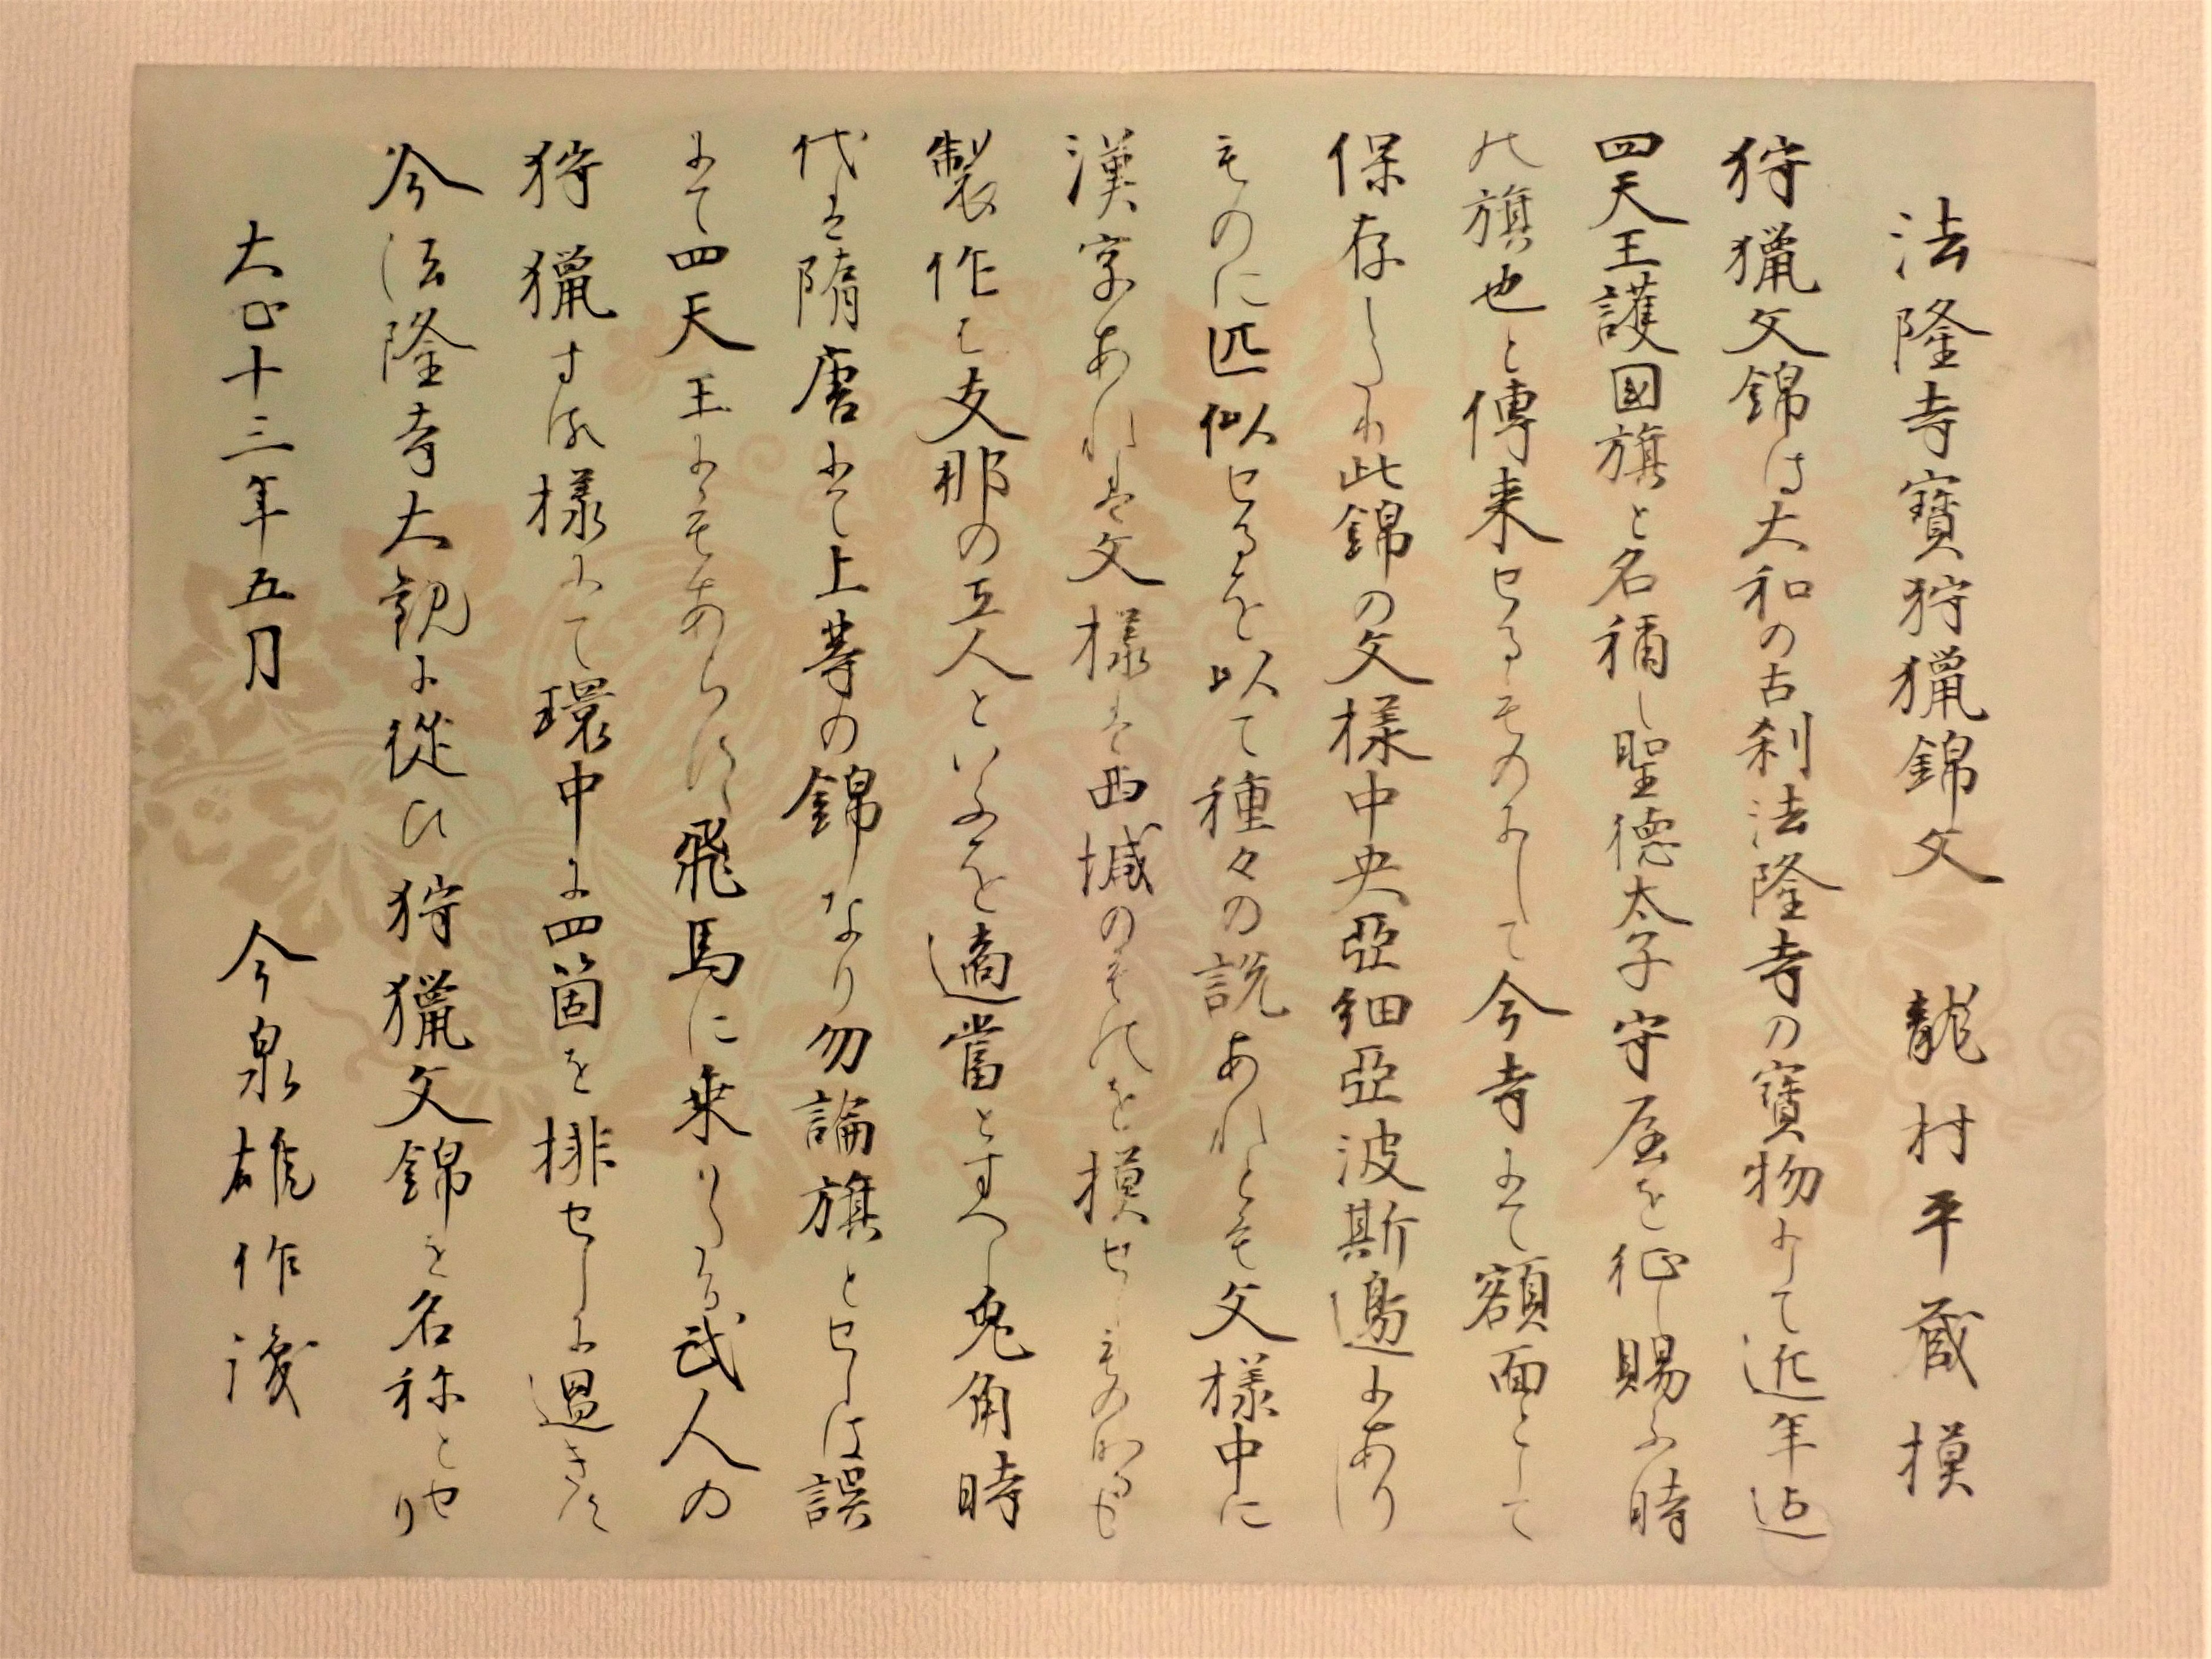 法隆寺寶狩獵錦文　龍村平蔵模
狩獵文錦は大和の古刹法隆寺の寶物にて近年迄
四天王護國旗と名稱し聖德太子守屋を征し賜ふ時
の旗也と傳来せるものにして今寺にて額面として
保存しられ此錦の文樣中央亞細亞波斯邊にあり
ものに匹似せるを以て種々の説あれとも文樣中に
漢字あれは文樣は西域のものを模せしものなるも
製作は支那の工人といふを適當とすへし兎角時
代は隋唐にて上等の錦なり勿論旗とせしは誤
にて四天王にもあらす飛馬に乗りたる武人の
狩獵する樣にて環中に四箇を排せしに過きす
今法隆寺大観に從ひ狩獵文錦を名称とせり
大正十三年五月　今泉雄作識